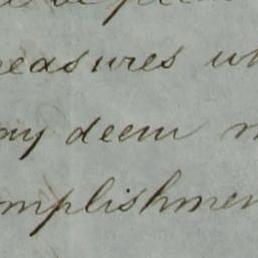 easures wh
ay deem n
mplishmen